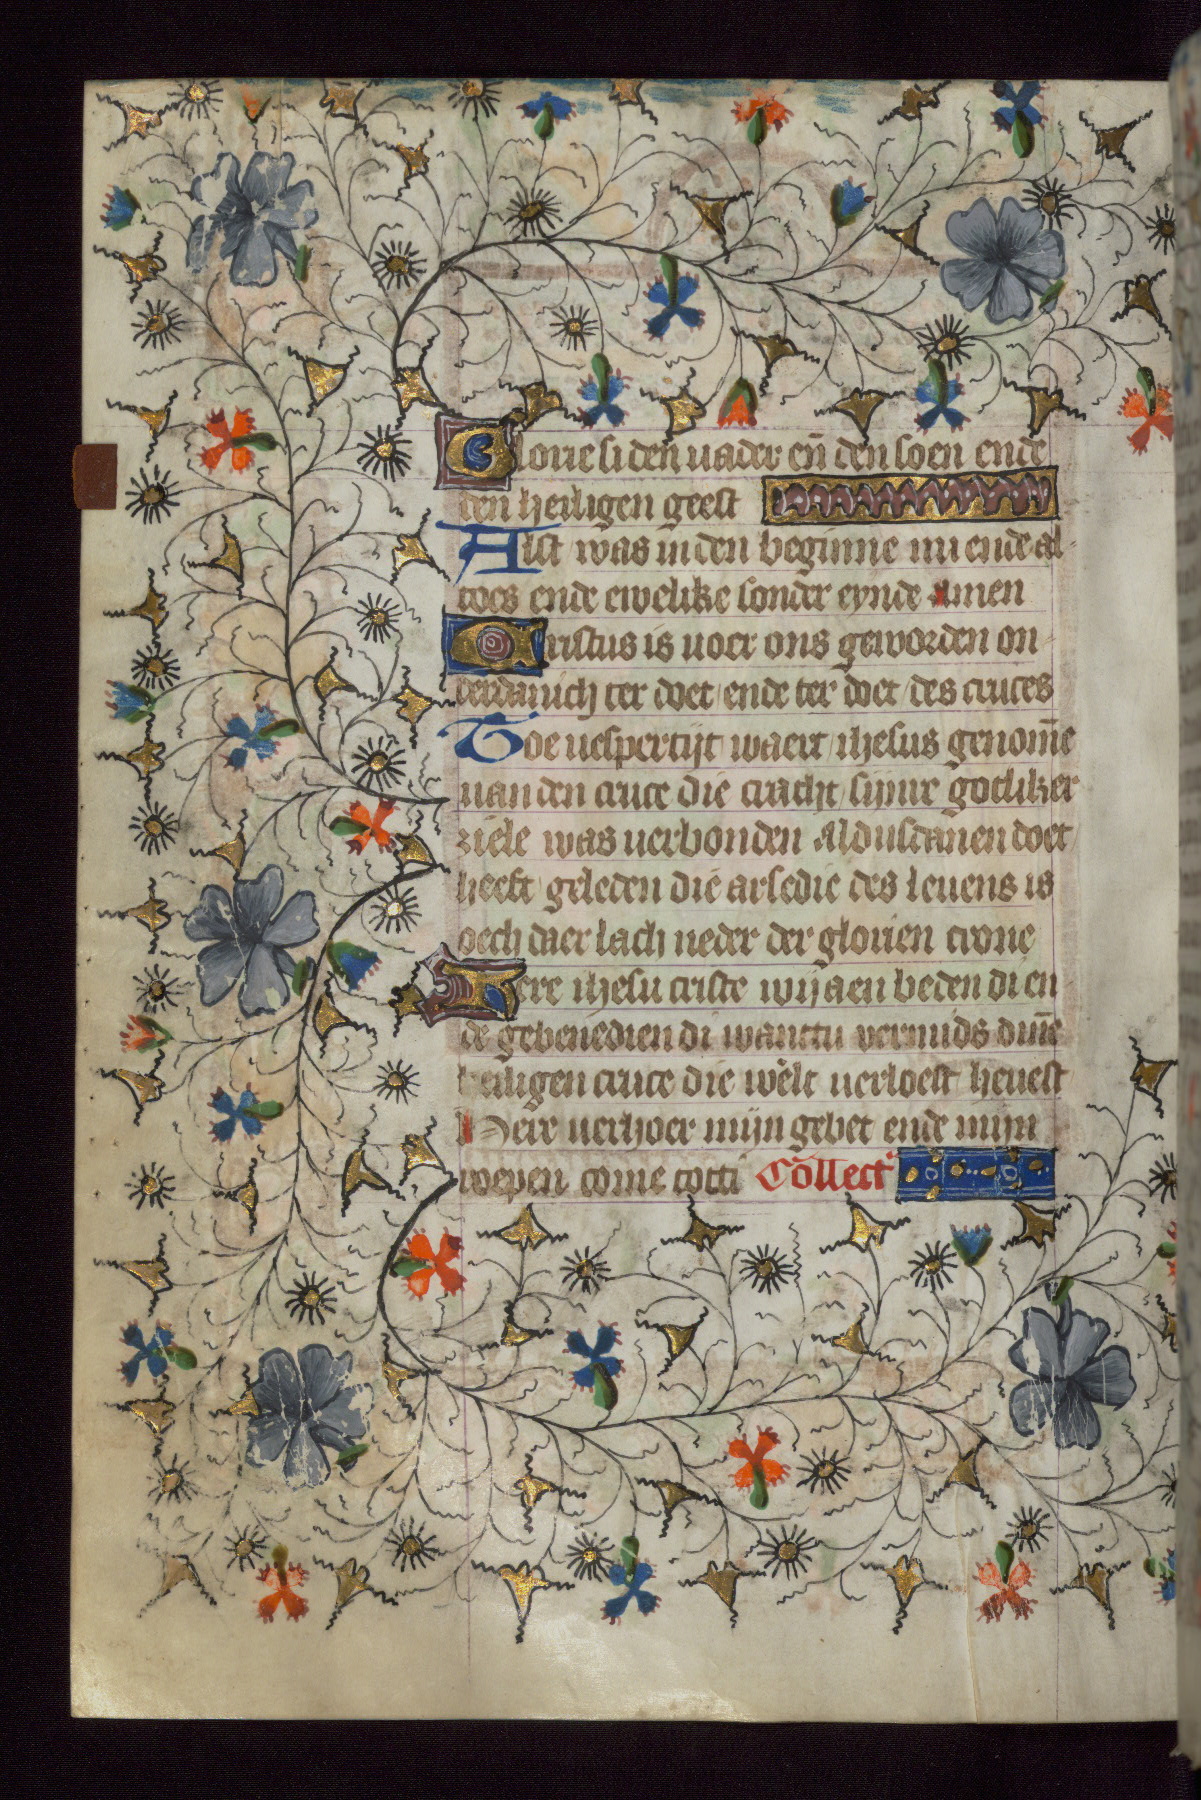 Glorie si den uader en̄ den soen ende
den heiligen geest
Alst was in den beginne nu ende al
toes ende ewelike sonder eynde Amen
Cristus is uoer ons geworden on
derdanich ter doet ende ter doet des cruces
Toe uespertijt waert ihesus genom̄e
uan den cruce die cracht sijnre gotliker
ziele was uerbonden Aldustanen doet
heeft geleden die arsedie des leuens is
oech daer lach neder der glorien crone
Here ihesu criste wij aen beden di en
de gebenedien di want tu vermids din̄e
heiligen cruce die welt uerloest heuest
Here uerhoer mijn gebet ende mijn
roepen come totti Collect'